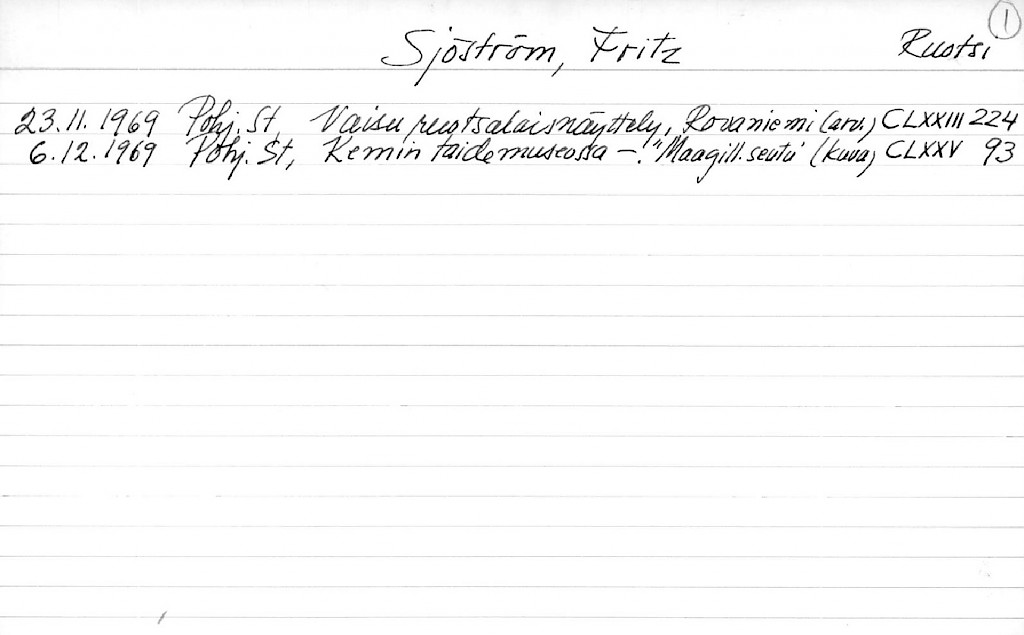 1
Sjöström, Fritz Ruotsi
23.11.1969 Pohj. St, Vaisu ruotsalaisnäyttely, Rovaniemi (arv.) CLXXIII 224
6.12.1969 Pohj. St, Kemin taidemuseossa –. "Maagill. seutu" (kuva) CLXXV 93